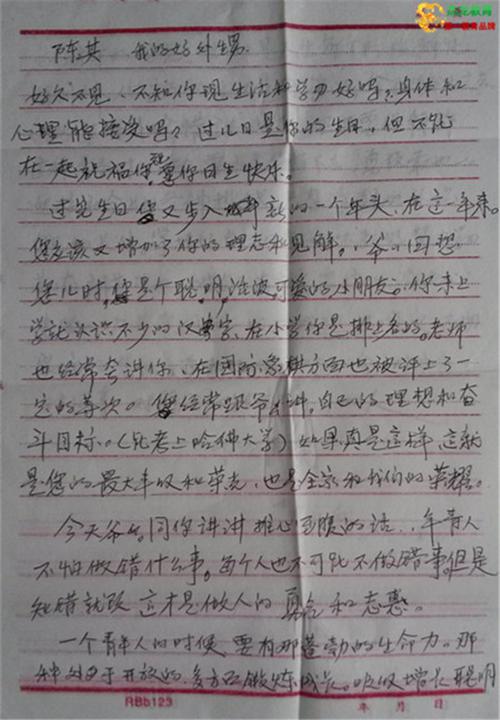 陈其 我的好外甥.
好久不见，不知你现生活和学习好吗？身体和
心理能接受吗？过几日是你的生日，但不能
在一起祝福你，愿你日生快乐。
过完生日您又步入新的一个年头，在这一年来。
您应该又增加了你的理志和见解。爷回想
您儿时，您是个聪明活波，可爱的小朋友。你未上
学就认识不少的汉字，在小学你是排上名的。老师
也经常夸讲你，在国际象棋方面也被评上了一
定的等次。您经常跟爷讲，自己的理想和奋
斗目标。（能考上哈佛大学）如果真是这样，这就
是您的最大丰收和荣光，也是全家和我们的荣耀。
今天爷同你讲讲推心至腹的话，年青人
不怕做错什么事。每个人也不可能不做错事，但是
知错就改 这才是做人的真
一个青年人的时候，要有那蓬勃的生命力。那
开放的，多方 成长。吸收增长聪明
RBb123 年 月 日